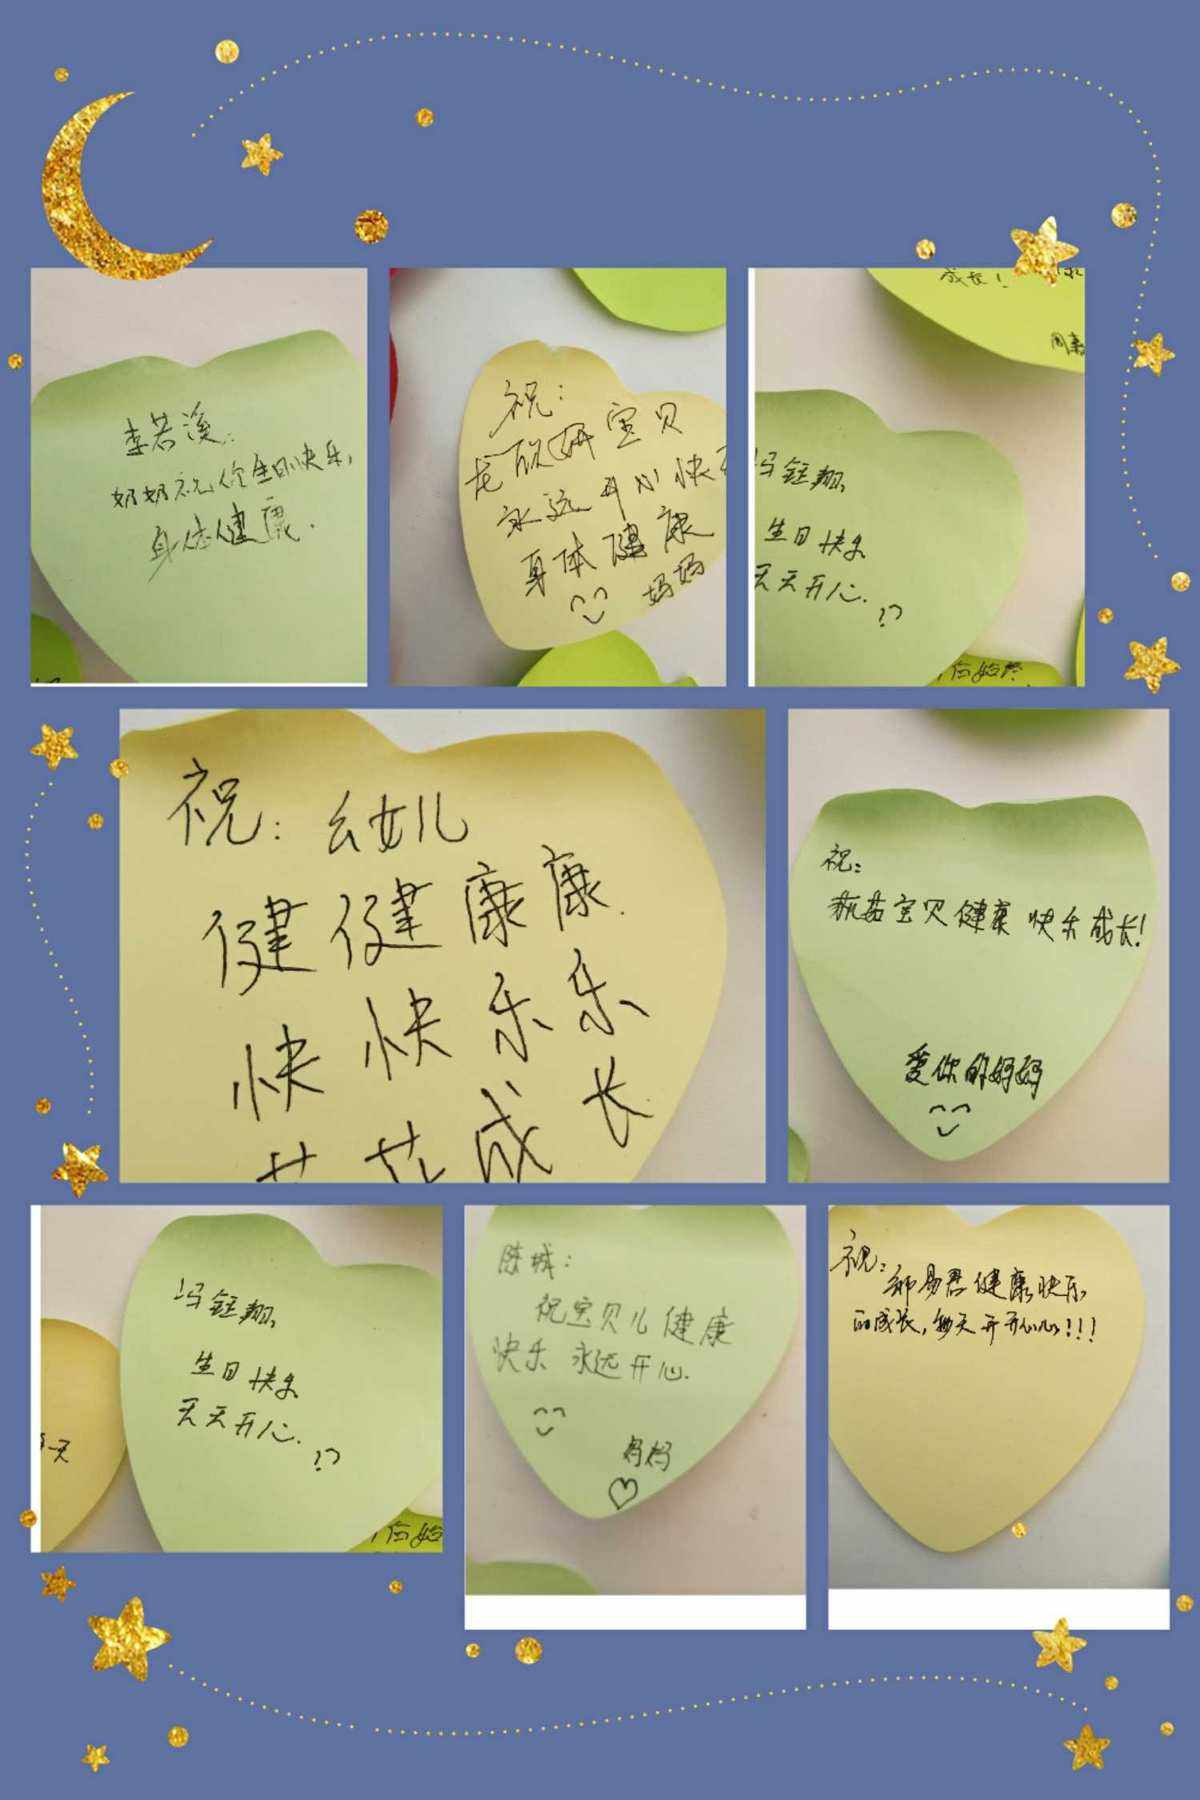 李若溪:
奶奶祝你生日快乐,
身体健康.
祝:
龙欣妍宝贝
永远开心快乐
身体健康
妈妈
成长!
冯钰翔,
生日快乐
天天开心.
祝:幼儿
健健康康.
快快乐乐
成长
祝:
宝贝健康 快乐成长!
爱你的妈妈
一天
冯钰翔,
生日快乐
天天开心.
陈城:
祝宝贝儿健康
快乐 永远开心.
妈妈
祝:
易君健康快乐
的成长,每天开开心心!!!